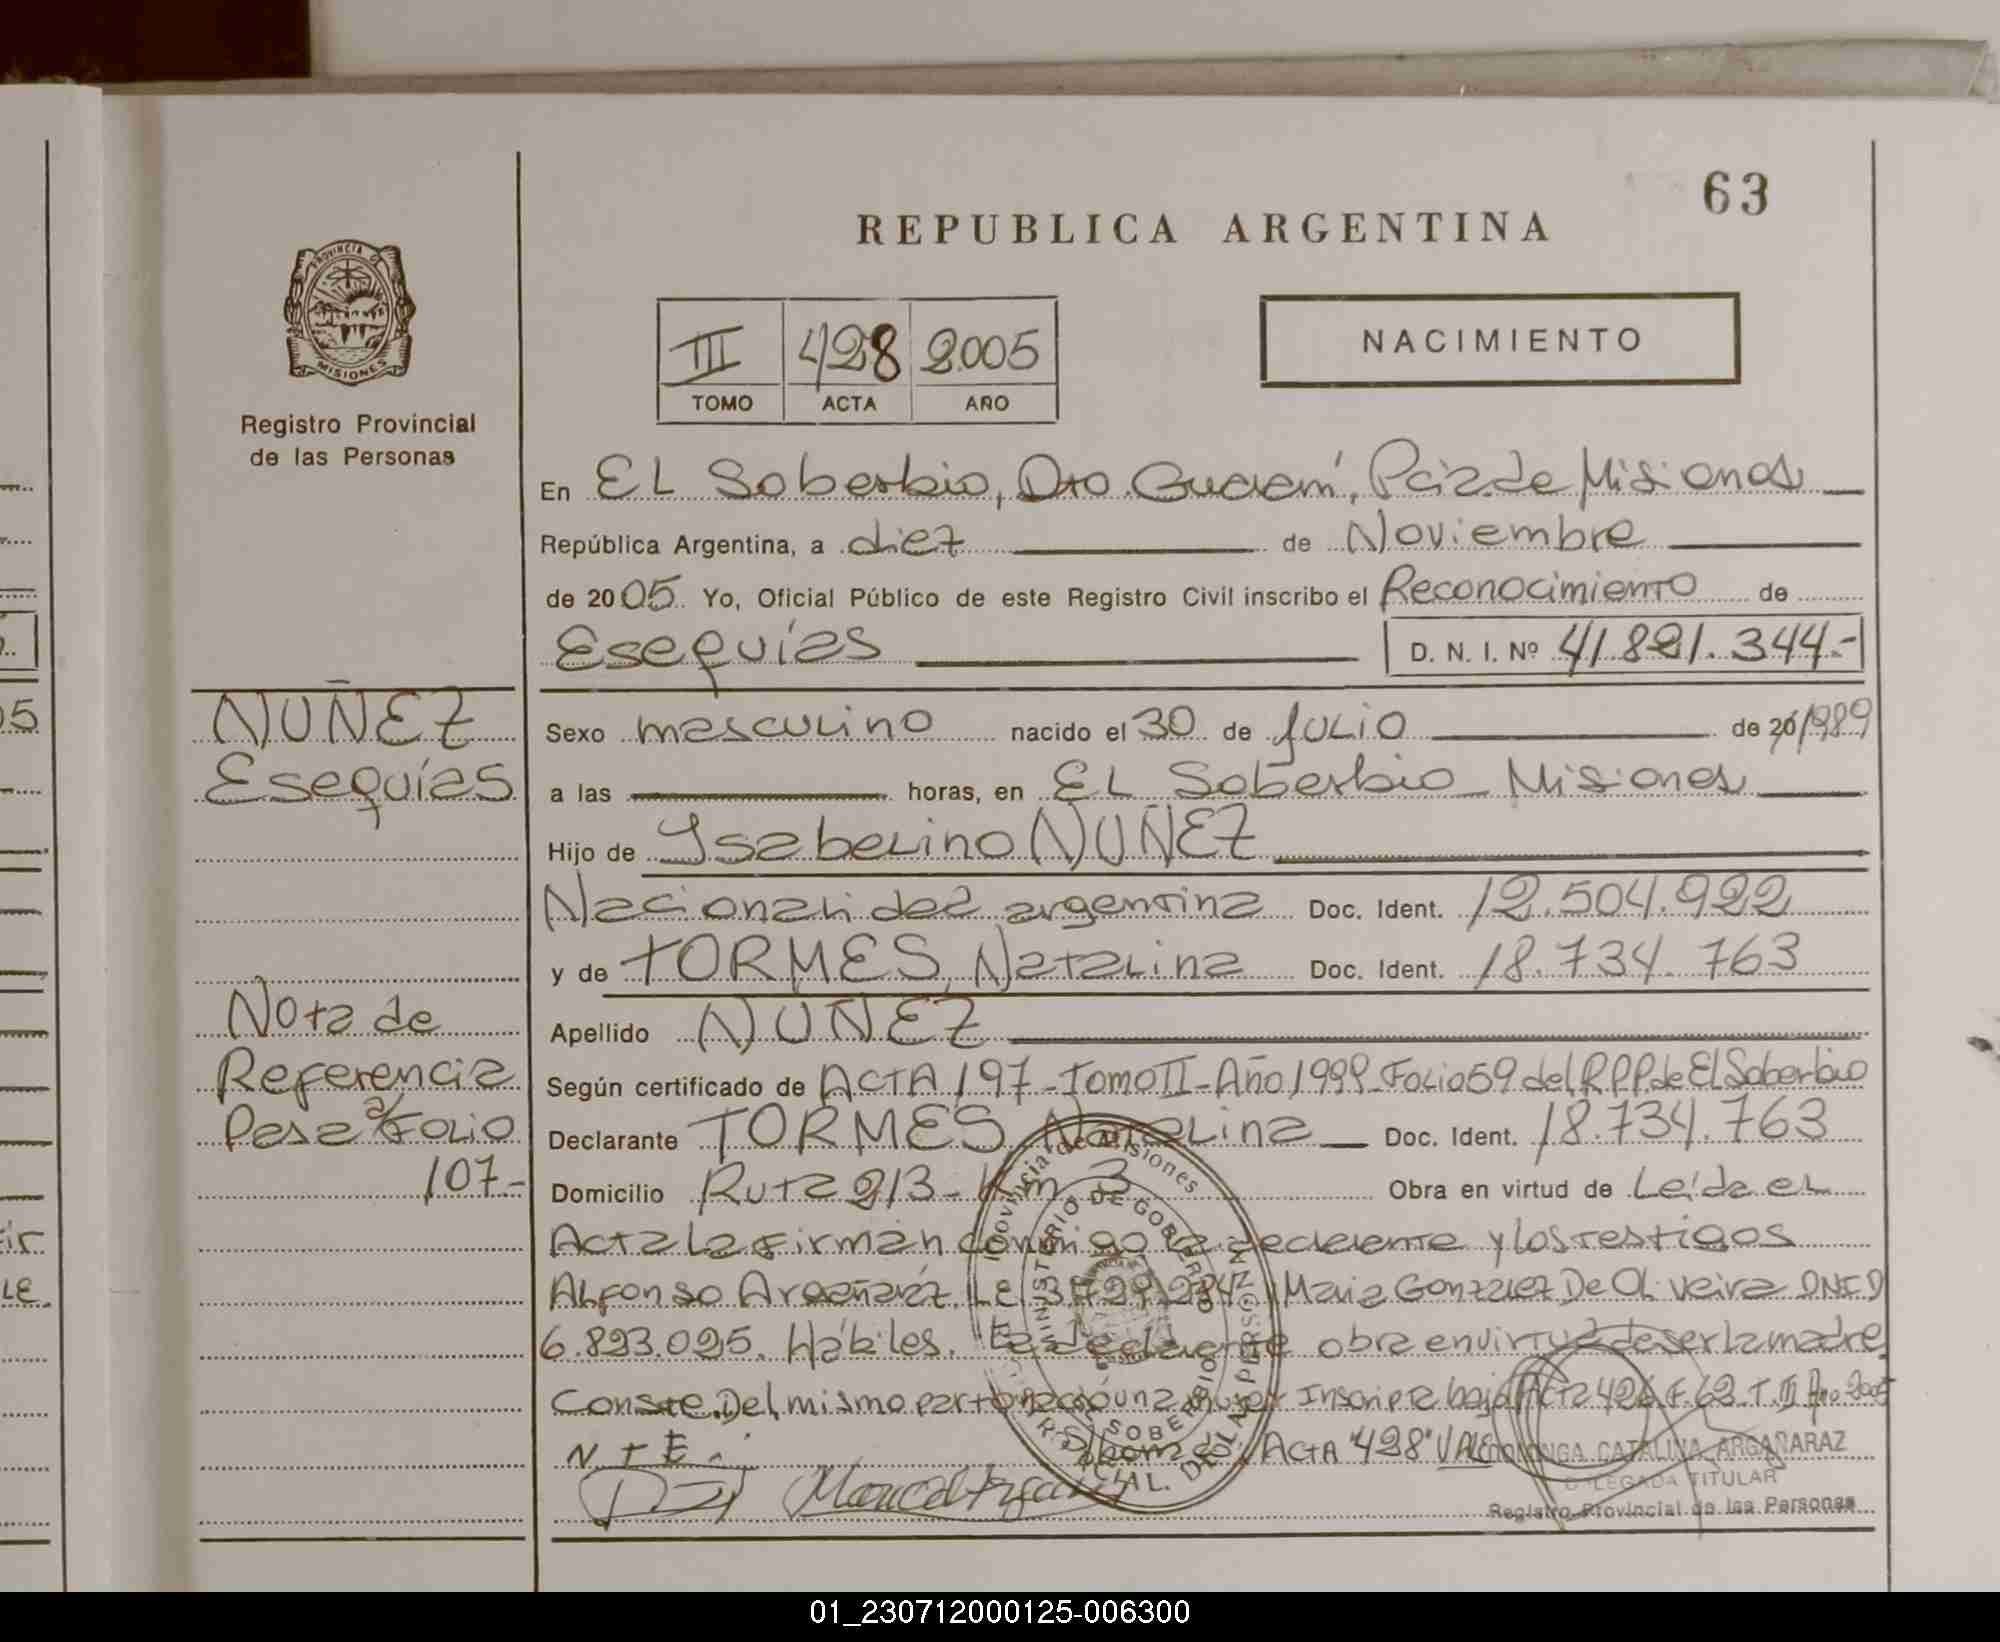 63
REPUBLICA ARGENTINA
PROVINCIA DE
MISIONES
Registro Provincial
de las Personas
III 428 2005
TOMO ACTA AÑO
NACIMIENTO
En EL Soberbio, Dto. Guaraní, Pcia. de Misiones
República Argentina, a diez de Noviembre
de 2005 Yo, Oficial Público de este Registro Civil inscribo el Reconocimiento de
Esequías D. N. I. Nº 41.821.344.-
NUÑEZ
Esequías
Sexo masculino nacido el 30 de JULIO de 20/1989
a las horas, en EL Soberbio - Misiones
Hijo de Ysabelino NUÑEZ
Nacionalidad argentina Doc. Ident. 12.504.922
y de TORMES, Natalina Doc. Ident. 18.734.763
Apellido NUÑEZ
Nota de
Referencia
Pasa a/ FOLIO
107-
Según certificado de ACTA 197 - Tomo II - Año 1999 - Folio 59 del R.P.P. de El Soberbio
Declarante TORMES Natalina Doc. Ident. 18.734.763
Domicilio Ruta 213 - Km 3 Obra en virtud de Leída el
Acta la firman conmigo la declarante y los testigos
Alfonso Argañaráz, LE 3.729.284 María Gonzalez De Oliveira DNI D
6.823.025. Hábiles. La declarante obra en virtud de ser la madre
Conste. Del mismo parto nació una mujer Inscripta bajo Acta 426 F. 62 T. III Año 2005
N + E.
ACTA "428" VALE
Provincia de Misiones
MINISTERIO DE GOBIERNO
SOBERBIO
DE LAS PERSONAS
CATALINA ARGAÑARAZ
DELEGADA TITULAR
Registro Provincial de las Personas
05
01_230712000125-006300